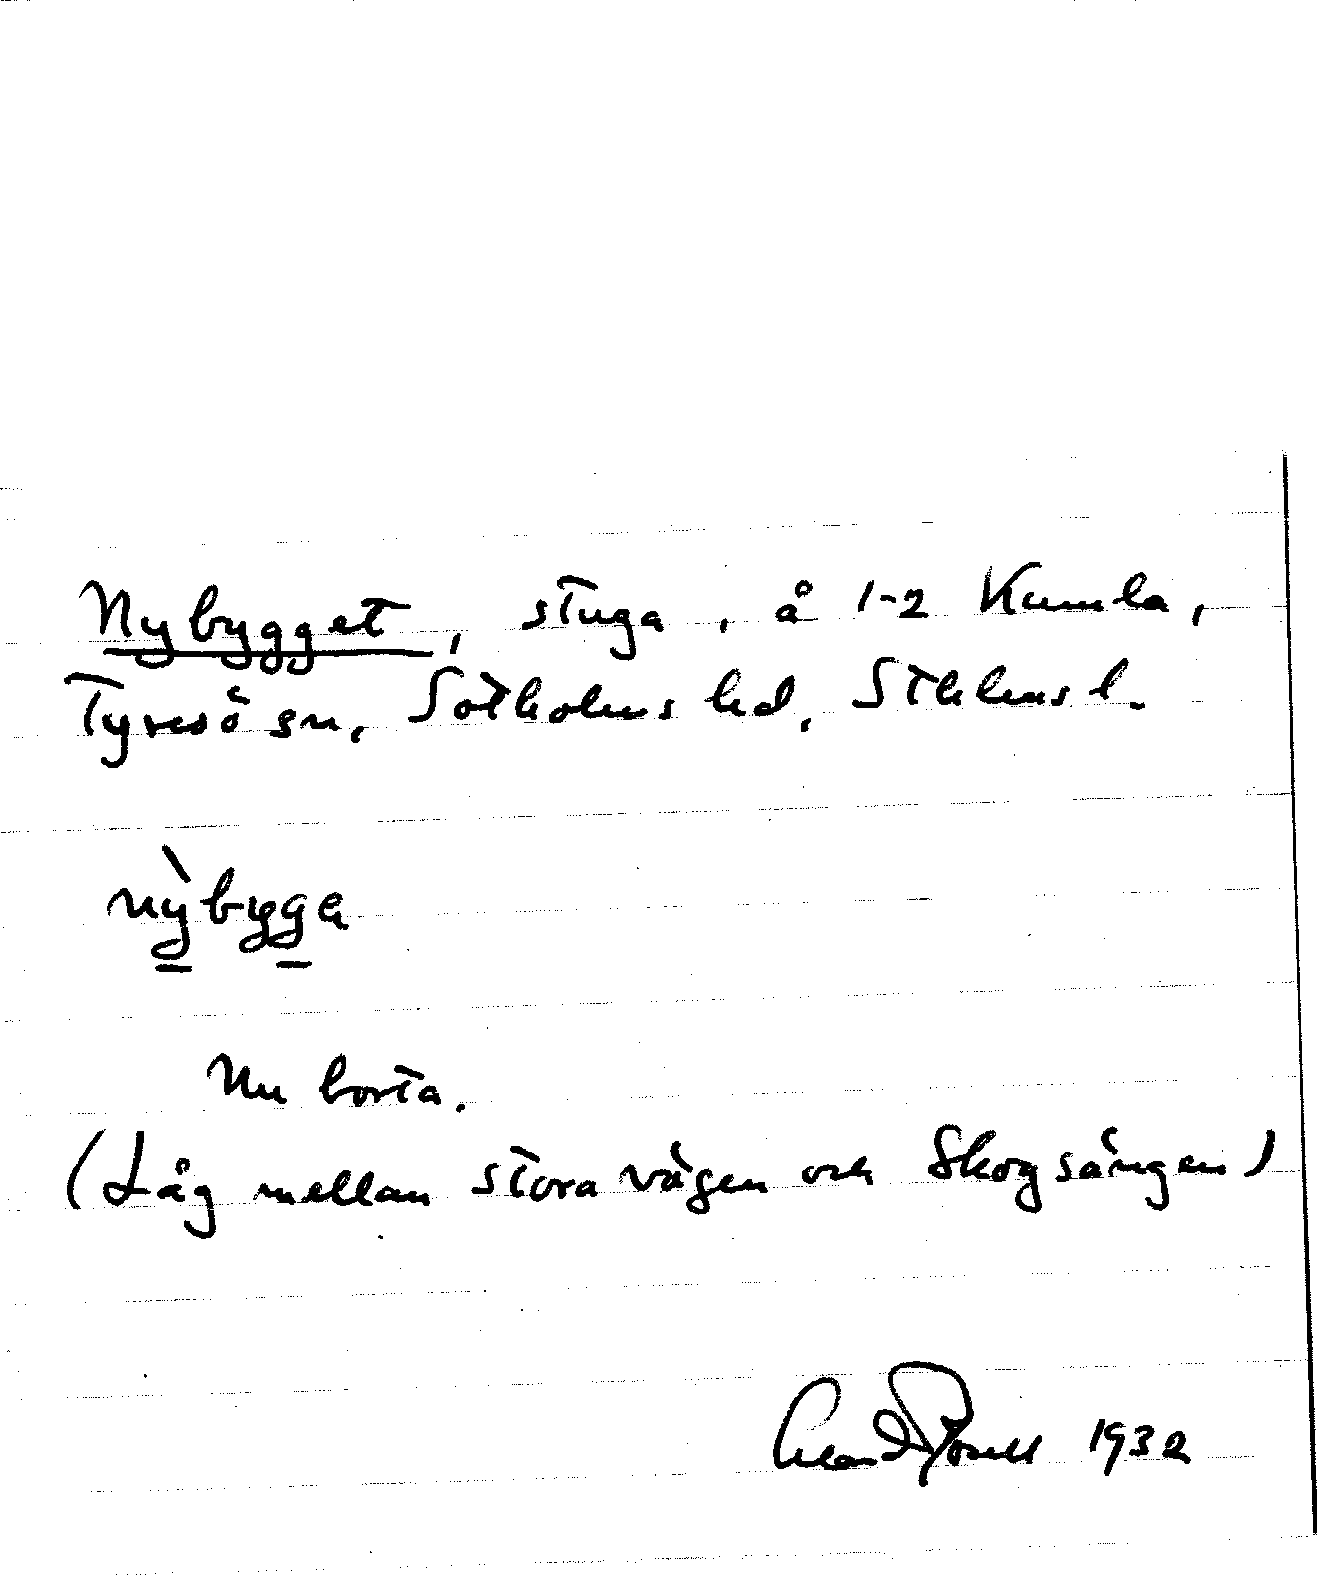 Nybygget, stuga, å 1-2 Kumla,
Tyresö sn, Sotholms hd, Sthlms l.
nỳbyga
Nu borta.
(Låg mellan stora vägen och Skogsängen)
1932